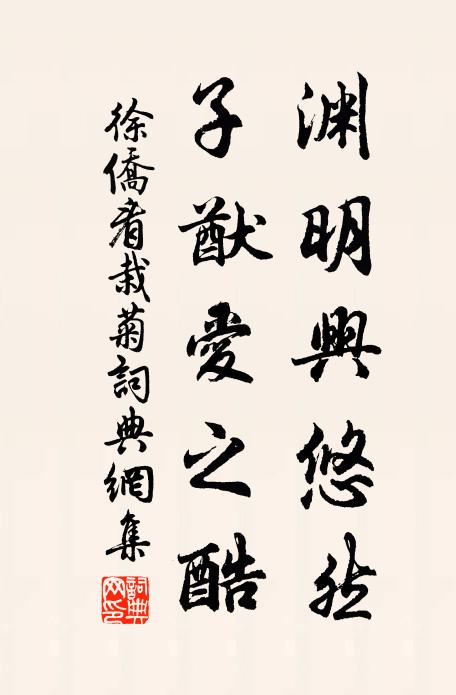 渊明興悠然
子猷愛之酷
徐僑看栽菊詞典網集
詞典网印